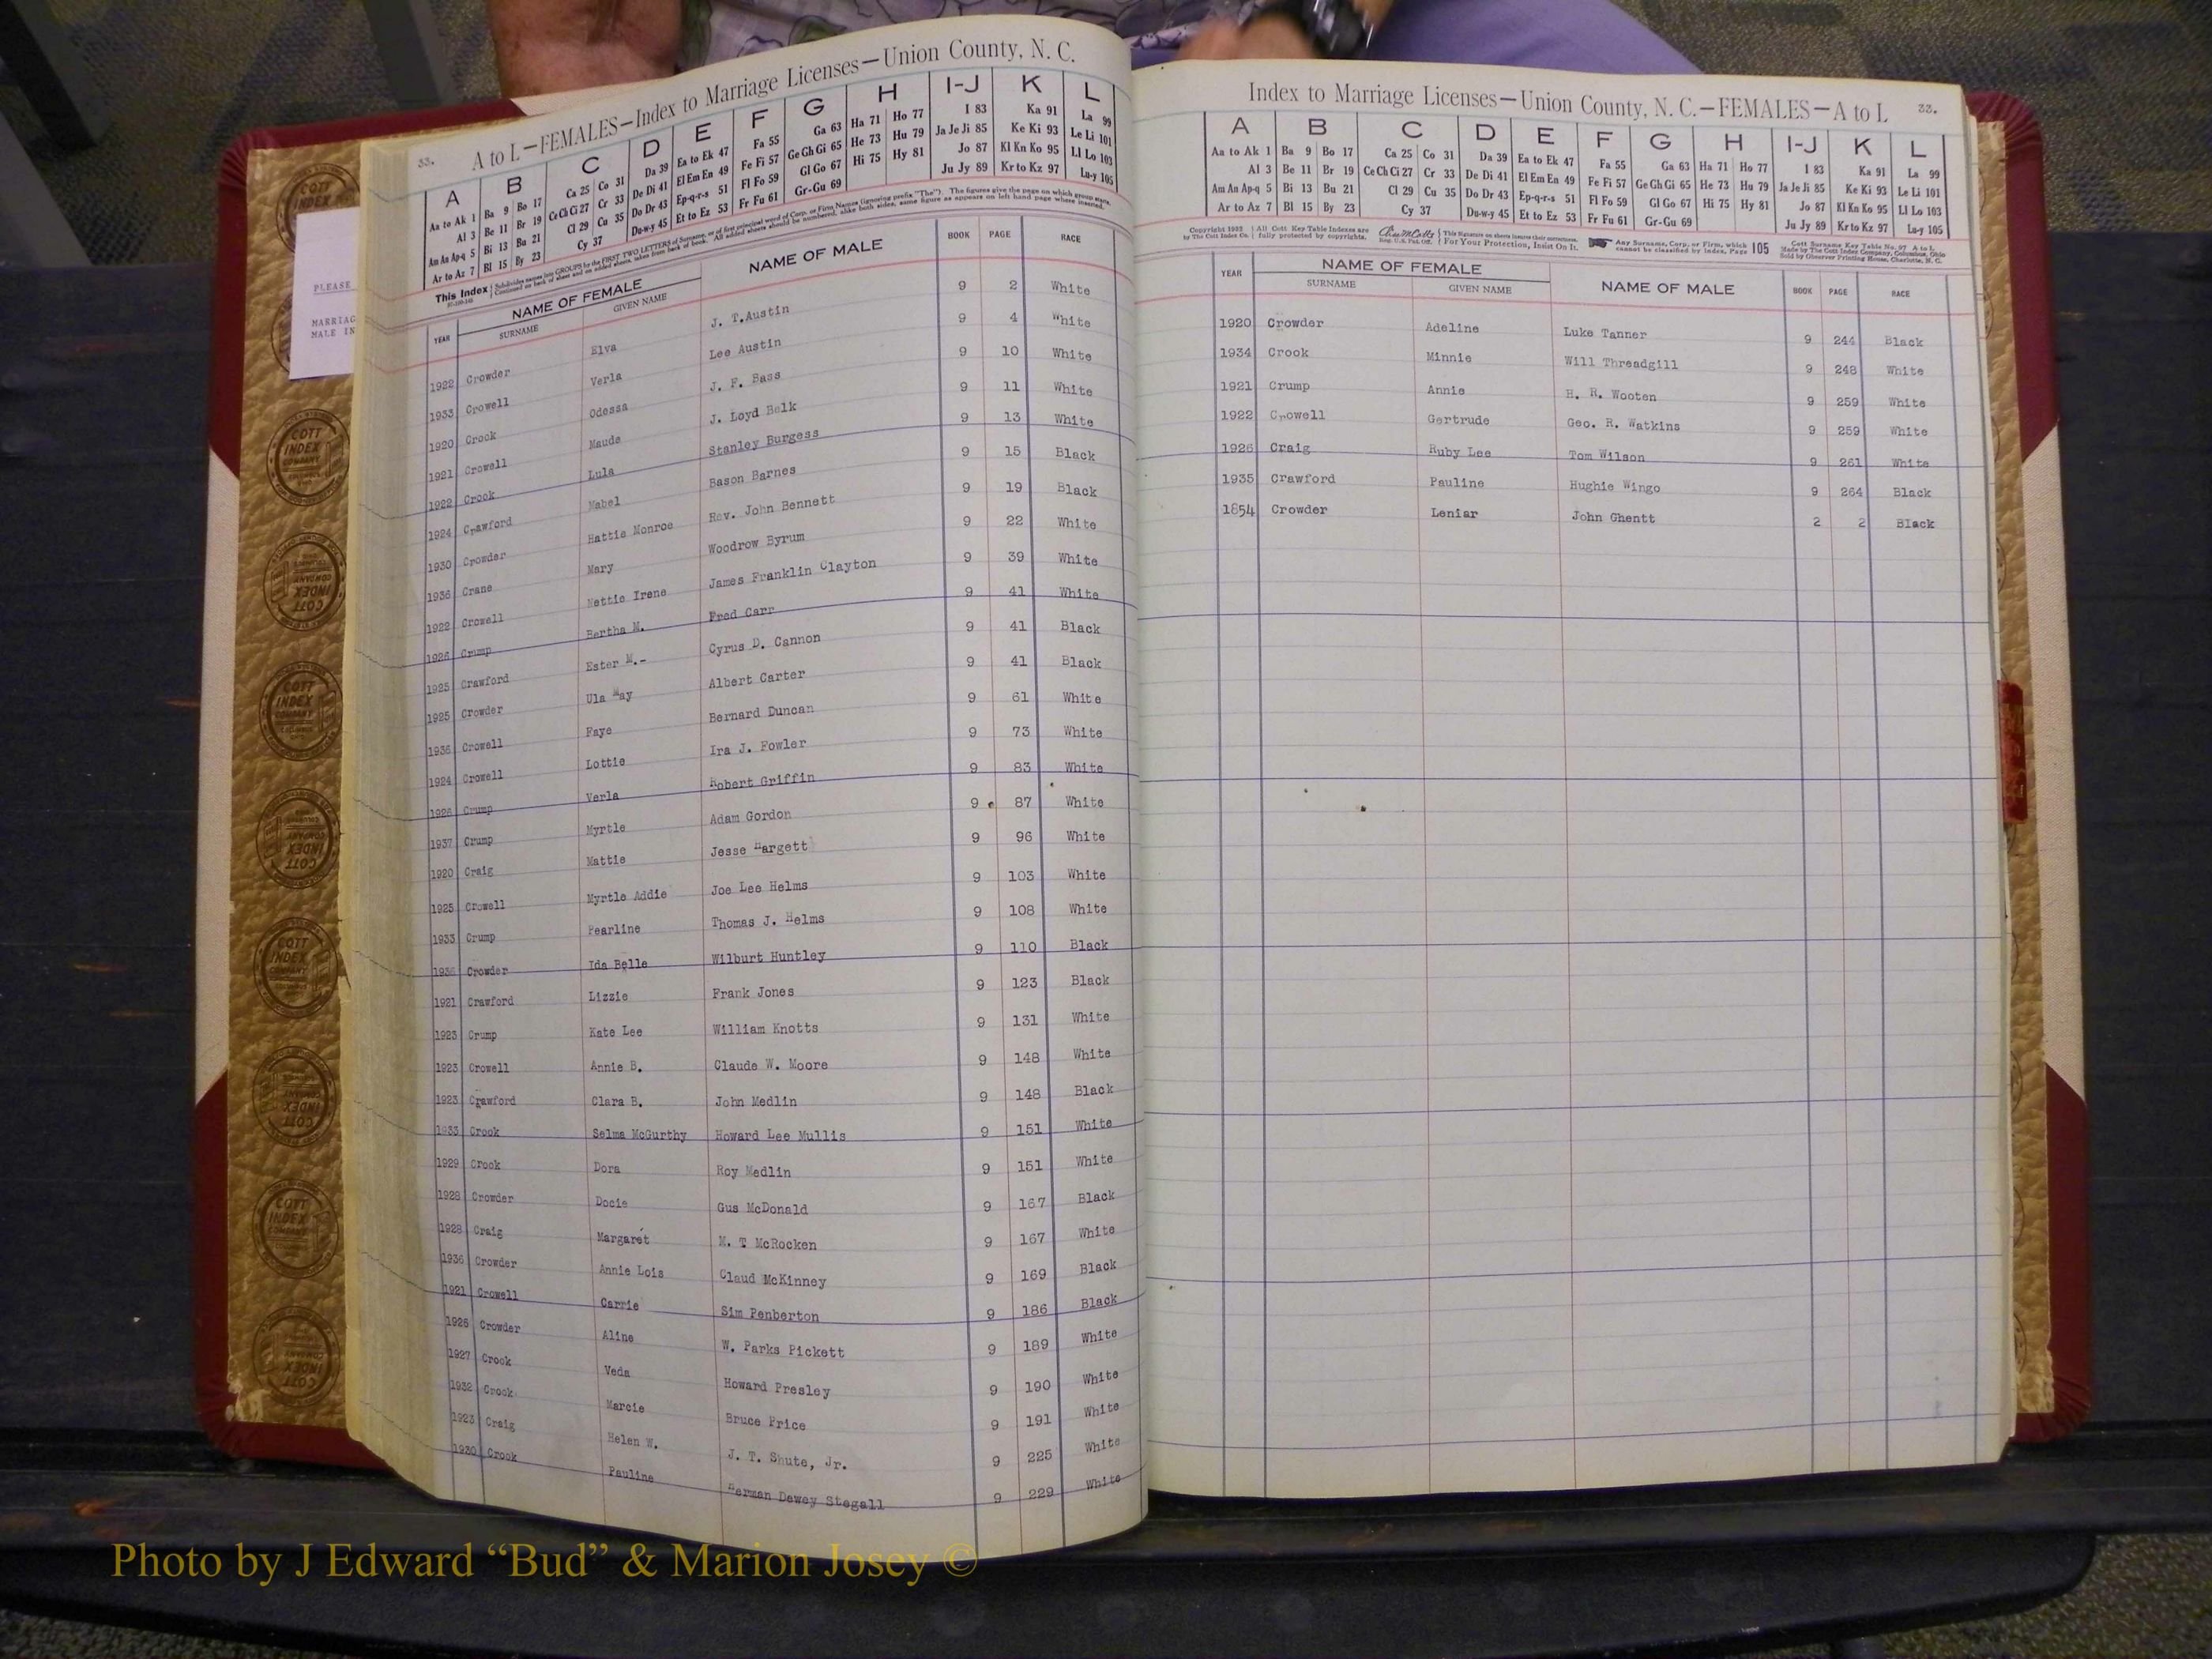 33. A to L—FEMALES—Index to Marriage Licenses—Union County, N. C.
A B C D E F G H I-J K L
Aa to Ak 1 Ba 9 Bo 17 Ca 25 Co 31 Da 39 Ea to Ek 47 Fa 55 Ga 63 Ha 71 Ho 77 I 83 Ka 91 La 99
Al 3 Be 11 Br 19 Ce Ch Ci 27 Cr 33 De Di 41 El Em En 49 Fe Fi 57 Ge Gh Gi 65 He 73 Hu 79 Ja Je Ji 85 Ke Ki 93 Le Li 101
Am An Ap-q 5 Bi 13 Bu 21 Cl 29 Cu 35 Do Dr 43 Ep-q-r-s 51 Fl Fo 59 Gl Go 67 Hi 75 Hy 81 Jo 87 Kl Kn Ko 95 Ll Lo 103
Ar to Az 7 Bl 15 By 23 Cy 37 Du-w-y 45 Et to Ez 53 Fr Fu 61 Gr-Gu 69 Ju Jy 89 Kr to Kz 97 Lu-y 105
This Index Subdivides names into GROUPS by the FIRST TWO LETTERS of Surname, or of first principal word of Corp. or Firm Names (ignoring prefix "The"). The figures give the page on which group starts.
Continued on back of sheet and on added sheets, taken from back of book. All added sheets should be numbered, alike both sides, same figure as appears on left hand page where inserted.
YEAR NAME OF FEMALE SURNAME GIVEN NAME NAME OF MALE BOOK PAGE RACE
1922 Crowder Elva J. T.Austin 9 2 White
1933 Crowell Verla Lee Austin 9 4 White
1920 Crook Odessa J. F. Bass 9 10 White
1921 Crowell Maude J. Loyd Belk 9 11 White
1922 Crook Lula Stanley Burgess 9 13 White
1924 Crawford Mabel Bason Barnes 9 15 Black
1930 Crowder Hattie Monroe Rev. John Bennett 9 19 Black
1936 Crane Mary Woodrow Byrum 9 22 White
1922 Crowell Nettie Irene James Franklin Clayton 9 39 White
1926 Crump Bertha M. Fred Carr 9 41 White
1925 Crawford Ester M.- Cyrus D. Cannon 9 41 Black
1925 Crowder Ula May Albert Carter 9 41 Black
1936 Crowell Faye Bernard Duncan 9 61 White
1924 Crowell Lottie Ira J. Fowler 9 73 White
1926 Crump Verla Robert Griffin 9 83 White
1937 Crump Myrtle Adam Gordon 9 87 White
1920 Craig Mattie Jesse Hargett 9 96 White
1925 Crowell Myrtle Addie Joe Lee Helms 9 103 White
1933 Crump Pearline Thomas J. Helms 9 108 White
1936 Crowder Ida Belle Wilburt Huntley 9 110 Black
1921 Crawford Lizzie Frank Jones 9 123 Black
1923 Crump Kate Lee William Knotts 9 131 White
1923 Crowell Annie B. Claude W. Moore 9 148 White
1923 Crawford Clara B. John Medlin 9 148 Black
1933 Crook Selma McGurthy Howard Lee Mullis 9 151 White
1929 Crook Dora Roy Medlin 9 151 White
1928 Crowder Docie Gus McDonald 9 167 Black
1928 Craig Margaret M. T McRocken 9 167 White
1936 Crowder Annie Lois Claud McKinney 9 169 Black
1921 Crowell Carrie Sim Penberton 9 186 Black
1926 Crowder Aline W. Parks Pickett 9 189 White
1927 Crook Veda Howard Presley 9 190 White
1932 Crook Marcie Bruce Price 9 191 White
1923 Craig Helen W. J. T. Shute, Jr. 9 225 White
1930 Crook Pauline Herman Dewey Stegall 9 229 White
Index to Marriage Licenses—Union County, N. C.—FEMALES—A to L 33.
A B C D E F G H I-J K L
Aa to Ak 1 Ba 9 Bo 17 Ca 25 Co 31 Da 39 Ea to Ek 47 Fa 55 Ga 63 Ha 71 Ho 77 I 83 Ka 91 La 99
Al 3 Be 11 Br 19 Ce Ch Ci 27 Cr 33 De Di 41 El Em En 49 Fe Fi 57 Ge Gh Gi 65 He 73 Hu 79 Ja Je Ji 85 Ke Ki 93 Le Li 101
Am An Ap-q 5 Bi 13 Bu 21 Cl 29 Cu 35 Do Dr 43 Ep-q-r-s 51 Fl Fo 59 Gl Go 67 Hi 75 Hy 81 Jo 87 Kl Kn Ko 95 Ll Lo 103
Ar to Az 7 Bl 15 By 23 Cy 37 Du-w-y 45 Et to Ez 53 Fr Fu 61 Gr-Gu 69 Ju Jy 89 Kr to Kz 97 Lu-y 105
Copyright 1922 All Cott Key Table Indexes are This signature on sheets insures their correctness. Any Surname, Corp. or Firm, which 105 Cott Surname Key Table No. 97 A to L
by The Cott Index Co. fully protected by copyrights. Reg. U.S. Pat. Off. For Your Protection, Insist On It. cannot be classified by Index, Page Made by The Cott Index Company, Columbus, Ohio
Sold by Observer Printing House, Charlotte, N. C.
YEAR NAME OF FEMALE SURNAME GIVEN NAME NAME OF MALE BOOK PAGE RACE
1920 Crowder Adeline Luke Tanner 9 244 Black
1934 Crook Minnie Will Threadgill 9 248 White
1921 Crump Annie H. R. Wooten 9 259 White
1922 Crowell Gertrude Geo. R. Watkins 9 259 White
1926 Craig Ruby Lee Tom Wilson 9 261 White
1935 Crawford Pauline Hughie Wingo 9 264 Black
1854 Crowder Leniar John Ghentt 2 2 Black
PLEASE
MARRIAG
MALE IN
COTT INDEX COMPANY
Photo by J Edward “Bud” & Marion Josey ©